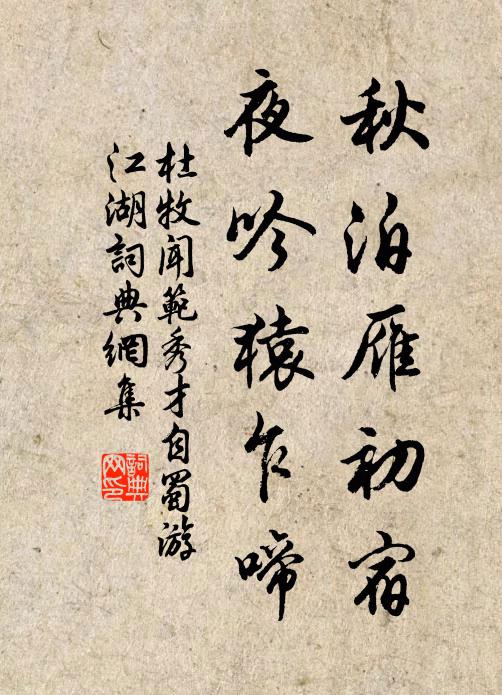 秋泊雁初宿
夜吟猿乍啼
杜牧聞範秀才自蜀游
江湖詞典網集
詞典
网印